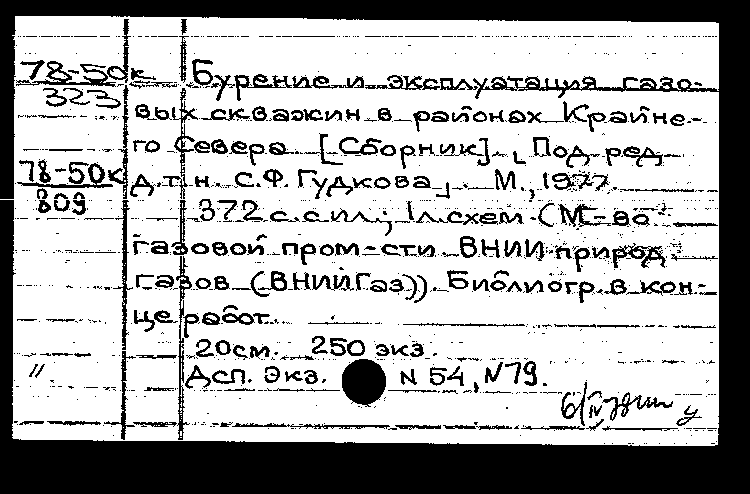 78-50к Бурение и эксплуатация газо-
323
вых скважин в районах Крайне-
го Севера [Сборник]. [Под ред.
78-50к д.т.н. С.Ф. Гудкова]. М., 1977.
809
372 с. с ил.; 1 л. схем. (М-во
газовой пром-сти. ВНИИ природ.
газов (ВНИИГаз)). Библиогр. в кон-
це работ.
20см. 250 экз.
Дсп. Экз. N 54, N79.
"